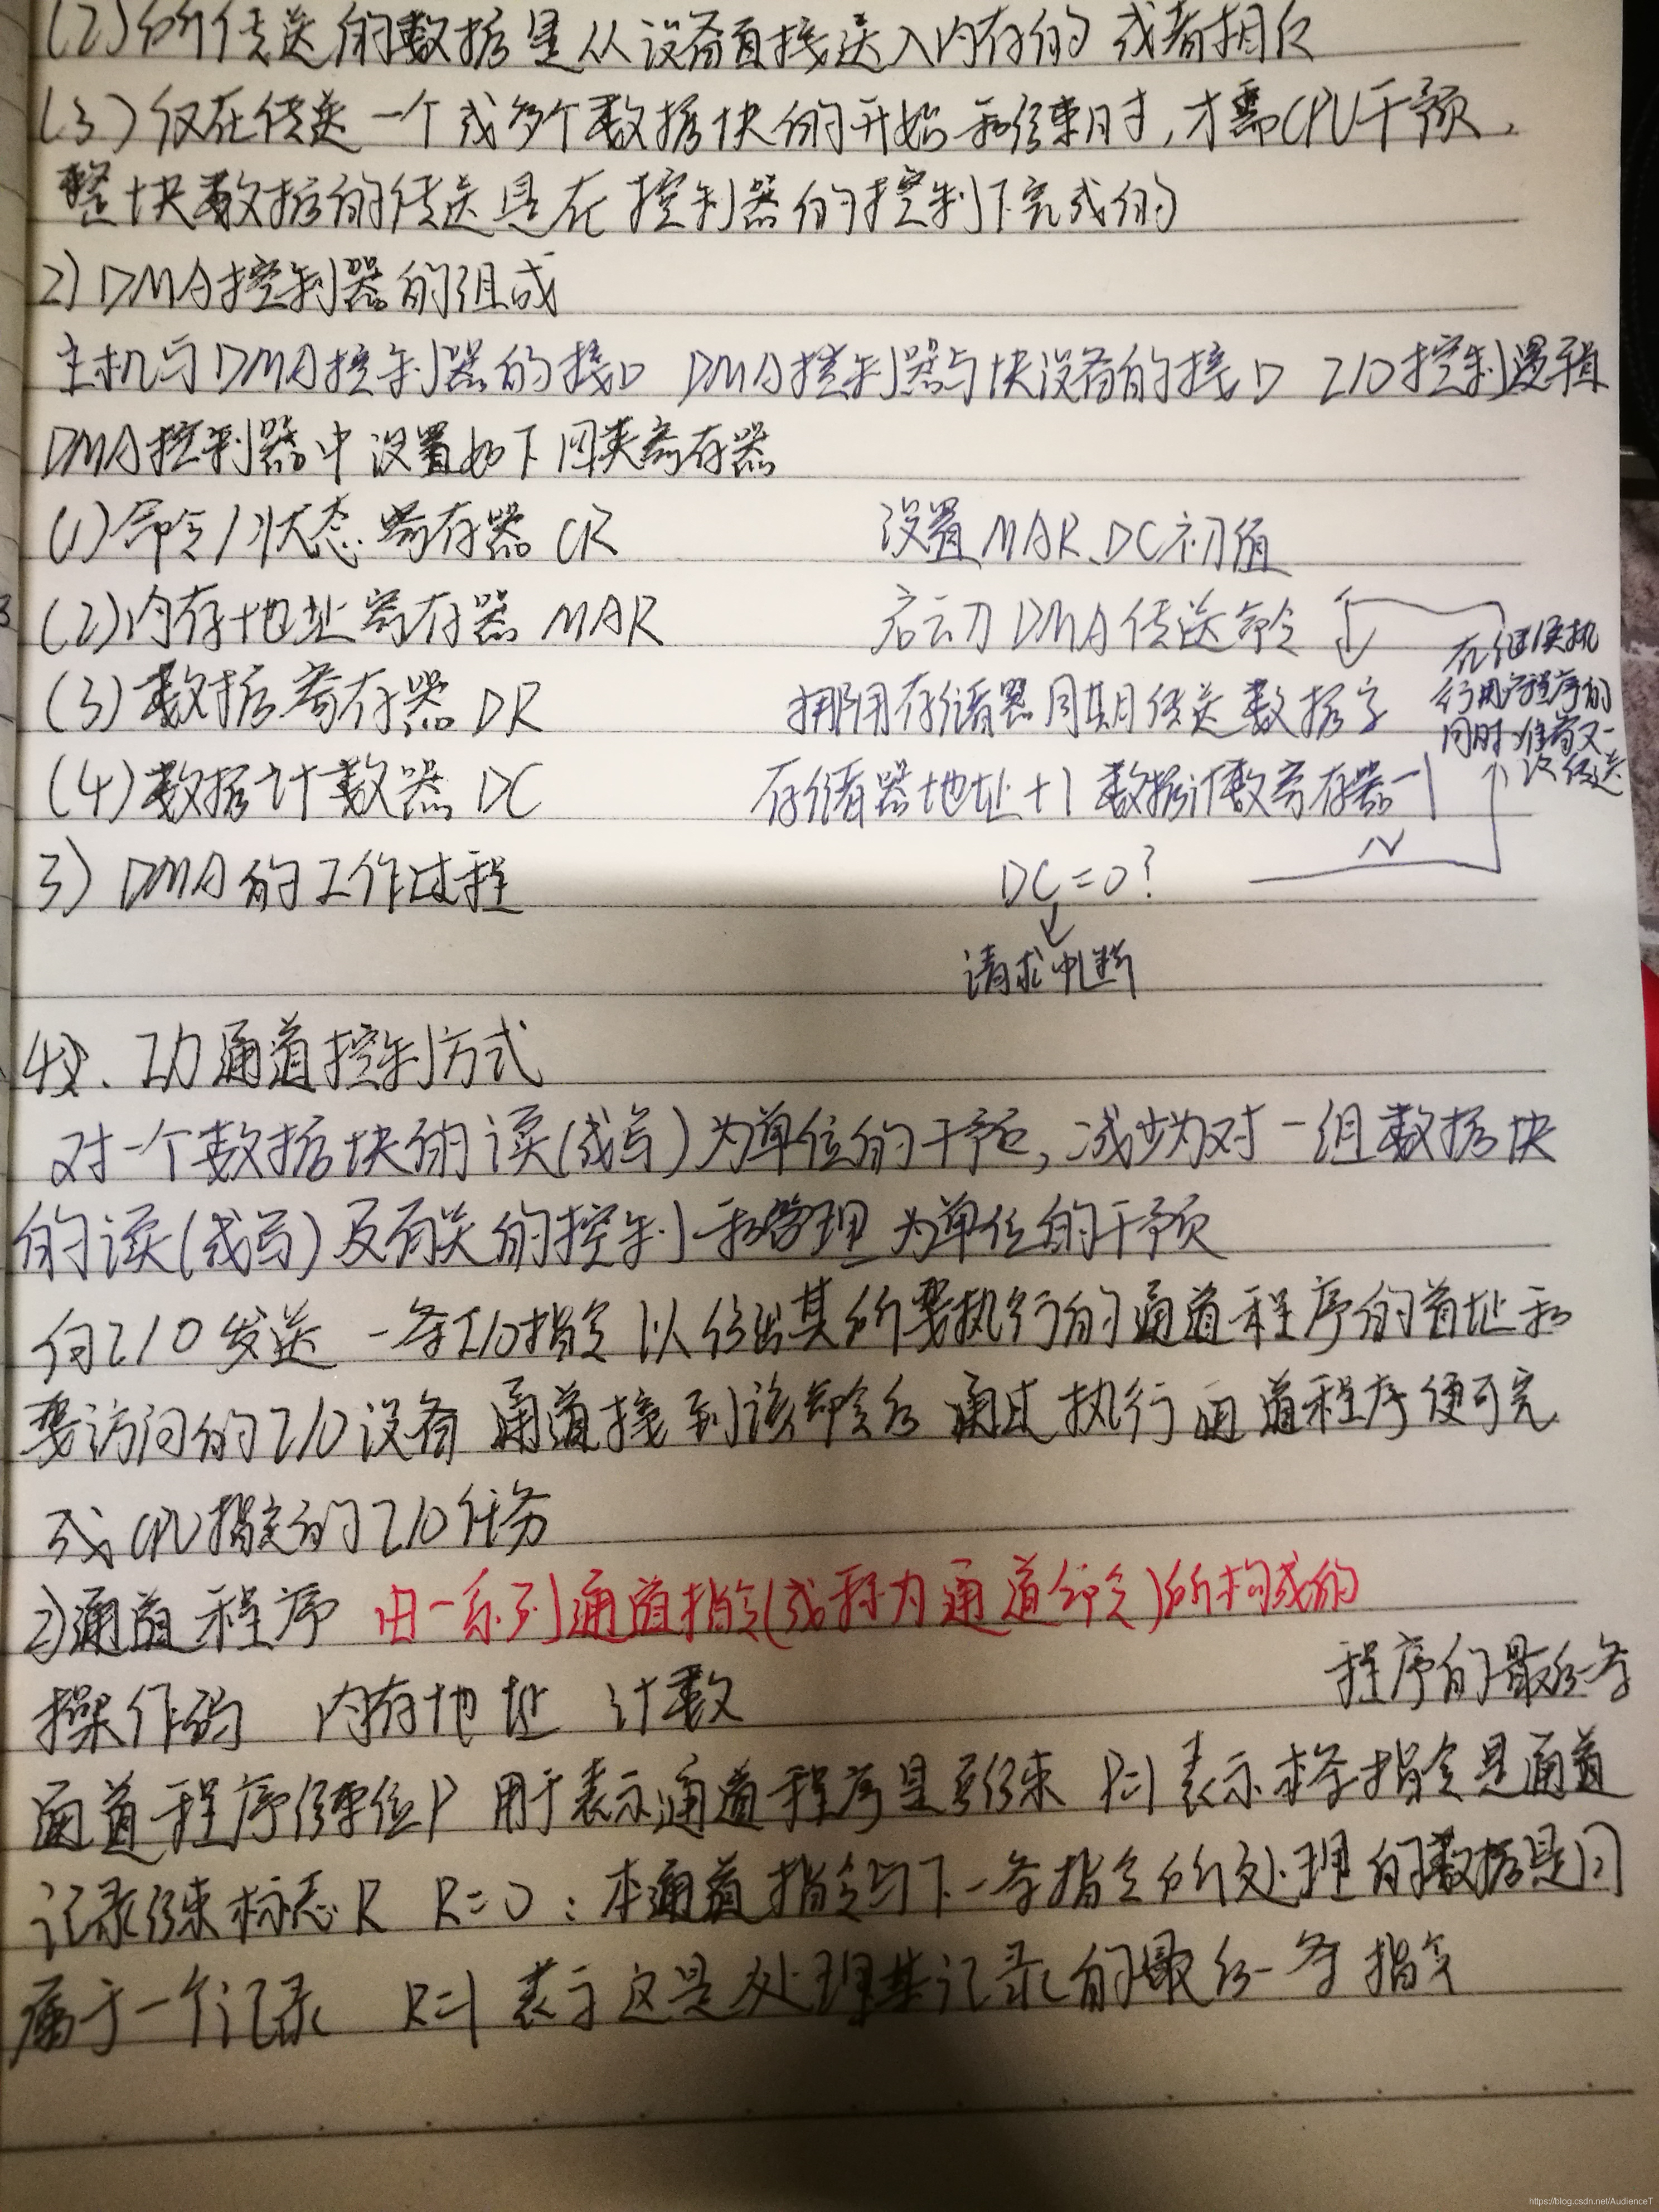 (2)所传送的数据是从设备直接送入内存的 或者相反
(3)仅在传送一个或多个数据块的开始和结束时,才需CPU干预,
整块数据的传送是在控制器的控制下完成的
2) DMA控制器的组成
主机与DMA控制器的接口 DMA控制器与块设备的接口 I/O控制逻辑
DMA控制器中设置如下四类寄存器
(1)命令/状态寄存器 CR
设置MAR、DC初值
(2)内存地址寄存器 MAR
启动DMA传送命令
(3)数据寄存器 DR
挪用存储器周期传送数据字
(4)数据计数器 DC
存储器地址+1 数据计数寄存器-1
在继续执
行用户程序的
同时准备又一
次传送
N
3) DMA的工作过程
DC=0?
请求中断
4 、I/O通道控制方式
对一个数据块的读(或写)为单位的干预,减少为对一组数据块
的读(或写)及有关的控制和管理为单位的干预
向I/O发送一条I/O指令 以给出其所要执行的通道程序的首址和
要访问的I/O设备 通道接到该命令后 通过执行通道程序便可完
成CPU指定的I/O任务
2)通道程序 由一系列通道指令(或称为通道命令)所构成的
操作码 内存地址 计数
程序的最后一条
通道程序结束位P 用于表示通道程序是否结束 P=1表示本条指令是通道
记录结束标志R R=0:本通道指令与下一条指令所处理的数据是同
属于一个记录 R=1 表示这是处理某记录的最后一条指令
https://blog.csdn.net/AudienceT